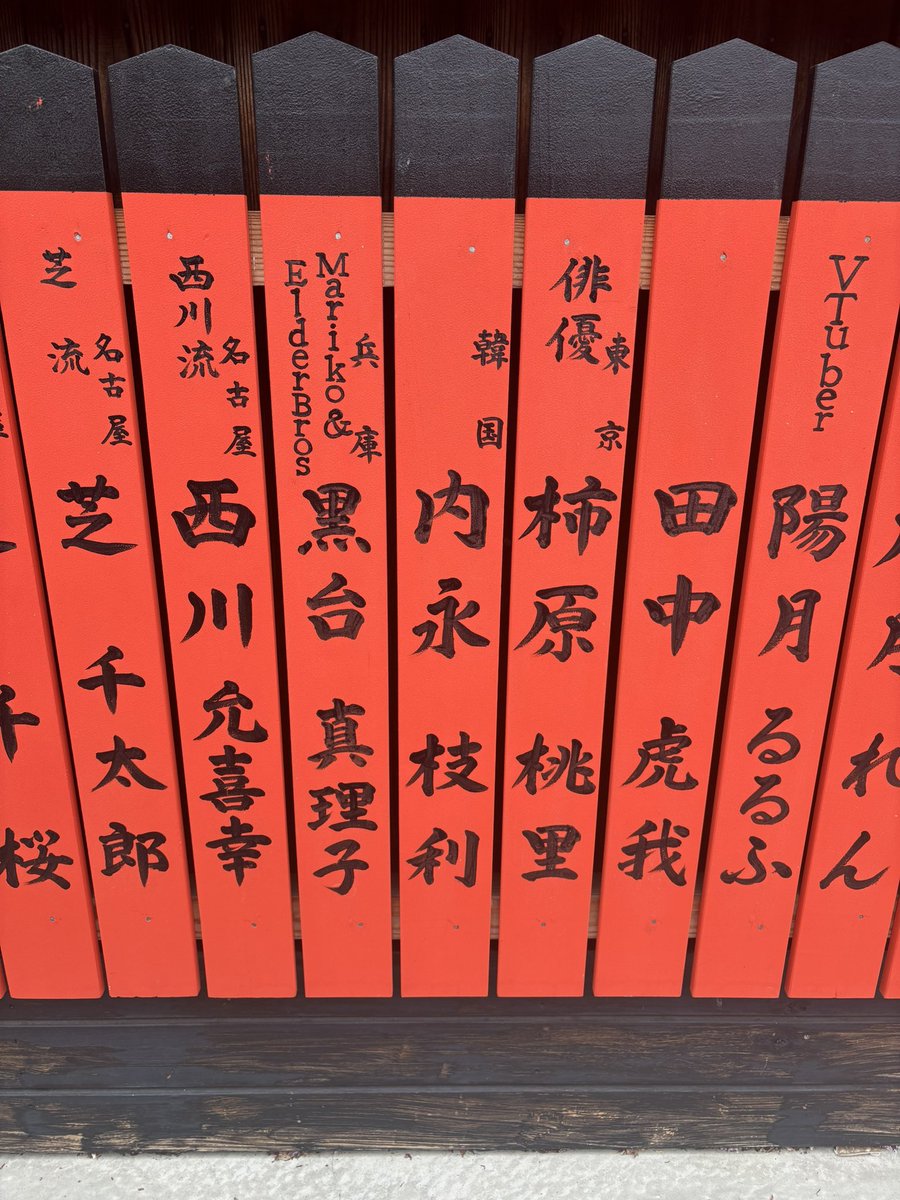 れん
VTuber
陽月 るるふ
田中 虎我
東京
俳優
柿原 桃里
韓国
内永 枝利
兵庫
Mariko&
ElderBros
黒台 真理子
名古屋
西川流
西川 允喜幸
名古屋
芝流
芝 千太郎
千桜